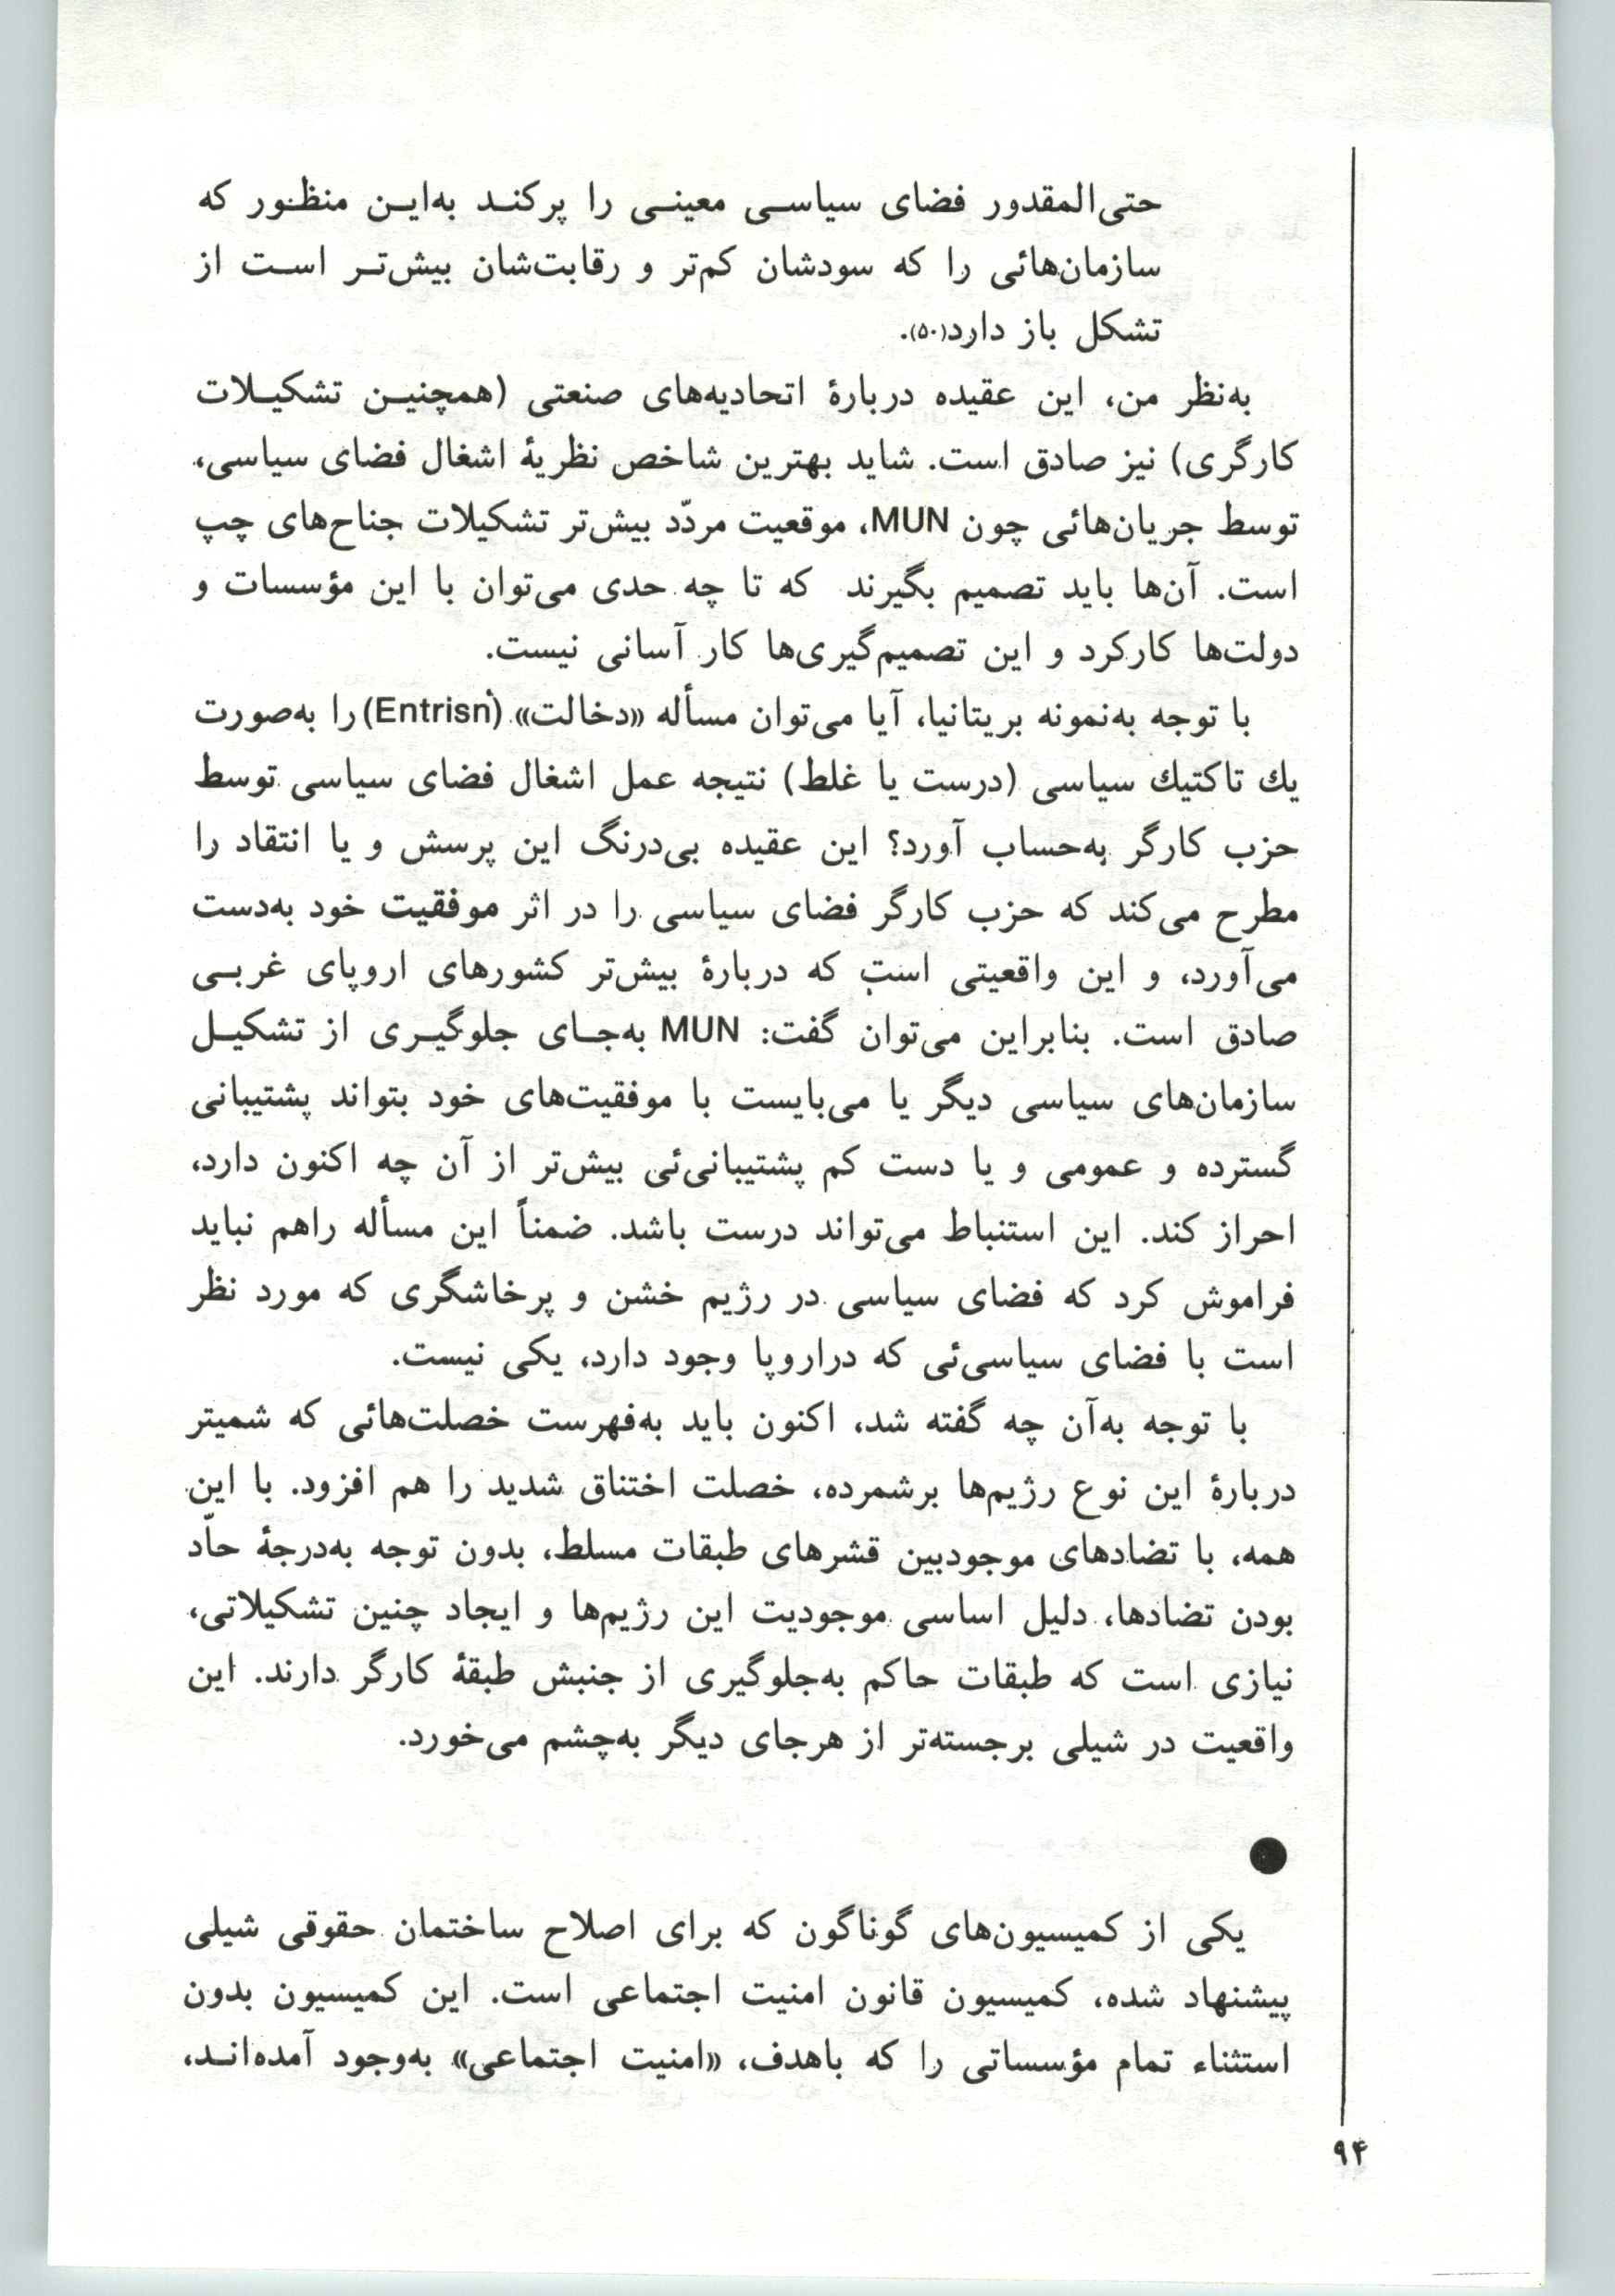 حتی‌المقدور فضای سیاسی معینی را پرکند به‌این منظور که
سازمان‌هائی را که سودشان کم‌تر و رقابت‌شان بیش‌تر است از
تشکل باز دارد(۵۰).
به‌نظر من، این عقیده دربارهٔ اتحادیه‌های صنعتی (همچنین تشکیلات
کارگری) نیز صادق است. شاید بهترین شاخص نظریهٔ اشغال فضای سیاسی،
توسط جریان‌هائی چون MUN، موقعیت مردّد بیش‌تر تشکیلات جناح‌های چپ
است. آن‌ها باید تصمیم بگیرند که تا چه حدی می‌توان با این مؤسسات و
دولت‌ها کارکرد و این تصمیم‌گیری‌ها کار آسانی نیست.
با توجه به‌نمونه بریتانیا، آیا می‌توان مسأله «دخالت» (Entrisn) را به‌صورت
یك تاکتیك سیاسی (درست یا غلط) نتیجه عمل اشغال فضای سیاسی توسط
حزب کارگر به‌حساب آورد؟ این عقیده بی‌درنگ این پرسش و یا انتقاد را
مطرح می‌کند که حزب کارگر فضای سیاسی را در اثر موفقیت خود به‌دست
می‌آورد، و این واقعیتی است که دربارهٔ بیش‌تر کشورهای اروپای غربی
صادق است. بنابراین می‌توان گفت: MUN به‌جای جلوگیری از تشکیل
سازمان‌های سیاسی دیگر یا می‌بایست با موفقیت‌های خود بتواند پشتیبانی
گسترده و عمومی و یا دست کم پشتیبانی‌ئی بیش‌تر از آن چه اکنون دارد،
احراز کند. این استنباط می‌تواند درست باشد. ضمناً این مسأله راهم نباید
فراموش کرد که فضای سیاسی در رژیم خشن و پرخاشگری که مورد نظر
است با فضای سیاسی‌ئی که دراروپا وجود دارد، یکی نیست.
با توجه به‌آن چه گفته شد، اکنون باید به‌فهرست خصلت‌هائی که شمیتر
دربارهٔ این نوع رژیم‌ها برشمرده، خصلت اختناق شدید را هم افزود. با این
همه، با تضادهای موجودبین قشرهای طبقات مسلط، بدون توجه به‌درجهٔ حادّ
بودن تضادها، دلیل اساسی موجودیت این رژیم‌ها و ایجاد چنین تشکیلاتی،
نیازی است که طبقات حاکم به‌جلوگیری از جنبش طبقهٔ کارگر دارند. این
واقعیت در شیلی برجسته‌تر از هرجای دیگر به‌چشم می‌خورد.
●
یکی از کمیسیون‌های گوناگون که برای اصلاح ساختمان حقوقی شیلی
پیشنهاد شده، کمیسیون قانون امنیت اجتماعی است. این کمیسیون بدون
استثناء تمام مؤسساتی را که باهدف، «امنیت اجتماعی» به‌وجود آمده‌اند،
۹۴